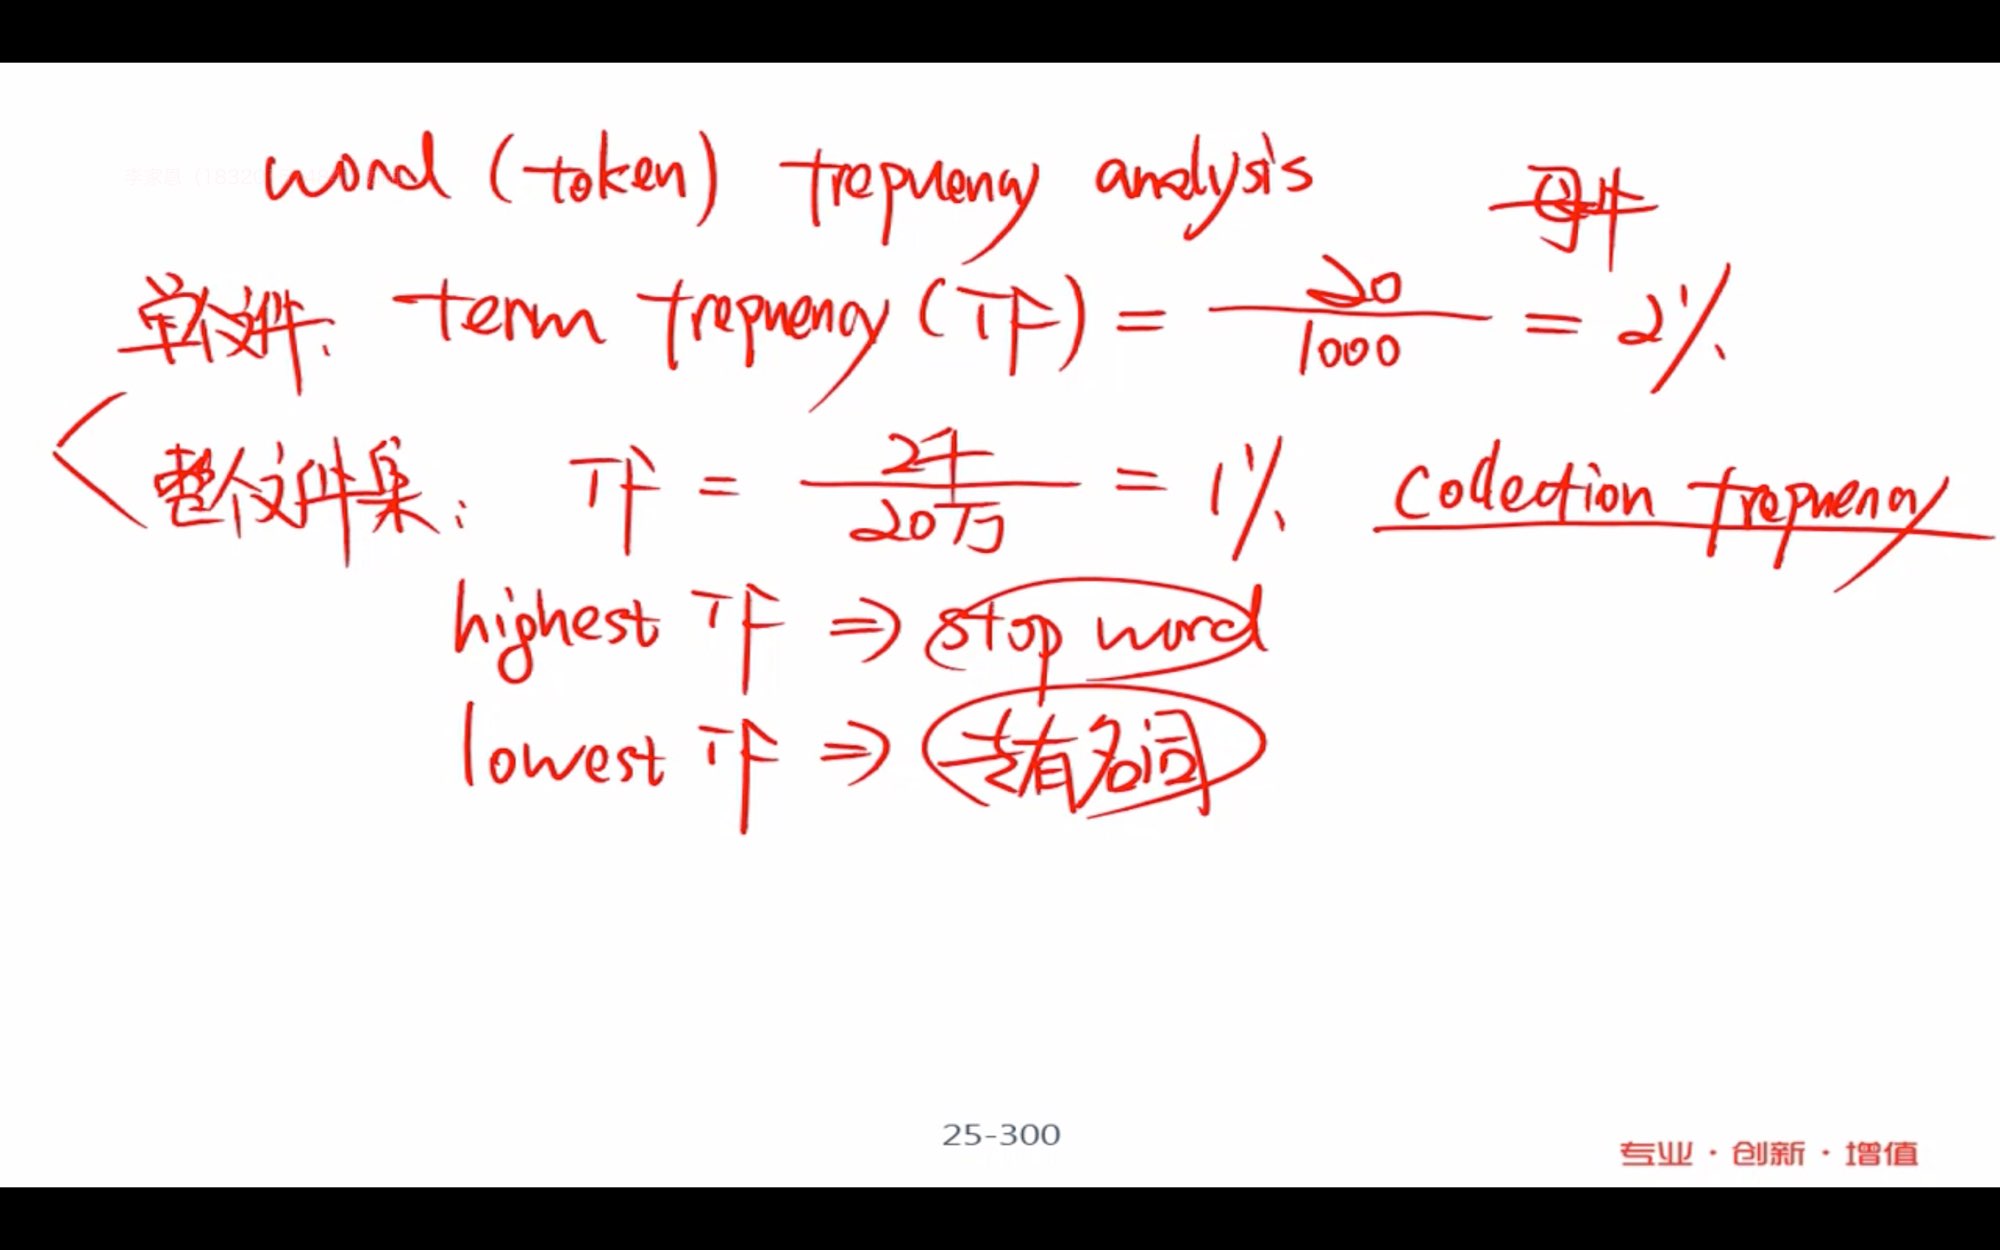 word (token) frequency analysis
单个文件: term frequency (TF) = 20/1000 = 2%
整个文件集: TF = 2千/20万 = 1% collection frequency
highest TF ⇒ stop word
lowest TF ⇒ 专有名词
25-300
专业·创新·增值